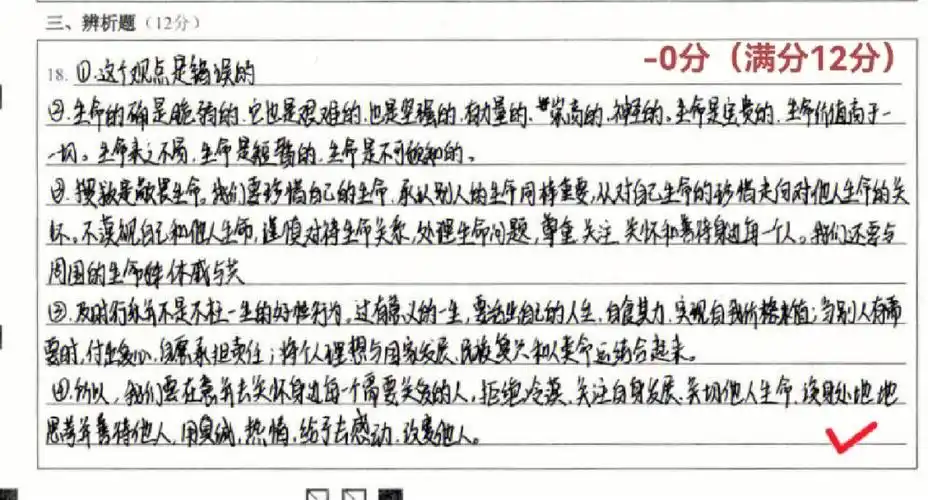 三、辨析题（12分）
-0分（满分12分）
18. ①.这个观点是错误的
②.生命的确是脆弱的.它也是艰难的.也是坚强的.有力量的.崇高的.神圣的.生命是宝贵的.生命价值高于一
切。生命来之不易.生命是短暂的.生命是不可逆和的。
③.提敬是敬畏生命。我们要珍惜自己的生命.承认别人的生命同样重要,从对自己生命的珍惜走向对他人生命的关
怀.不漠视自己和他人生命,谨慎对待生命关系,处理生命问题,尊重.关注.关怀和善待身边每一个人。我们还要与
周围的生命休戚与共
③.及时行乐并不是不枉一生的好性行为.过有意义的一生,要活出自己的人生.自食其力.实现自我价值;当别人有需
要时,付出爱心.自愿承担责任;将个人理想与国家发展.民族复兴和人类命运结合起来。
④.所以,我们要在意并去关怀身边每一个需要关爱的人,拒绝冷漠.关注自身发展.关切他人生命.设身处地地
思考并善待他人,用真诚,热情.给予去感动.改变他人。